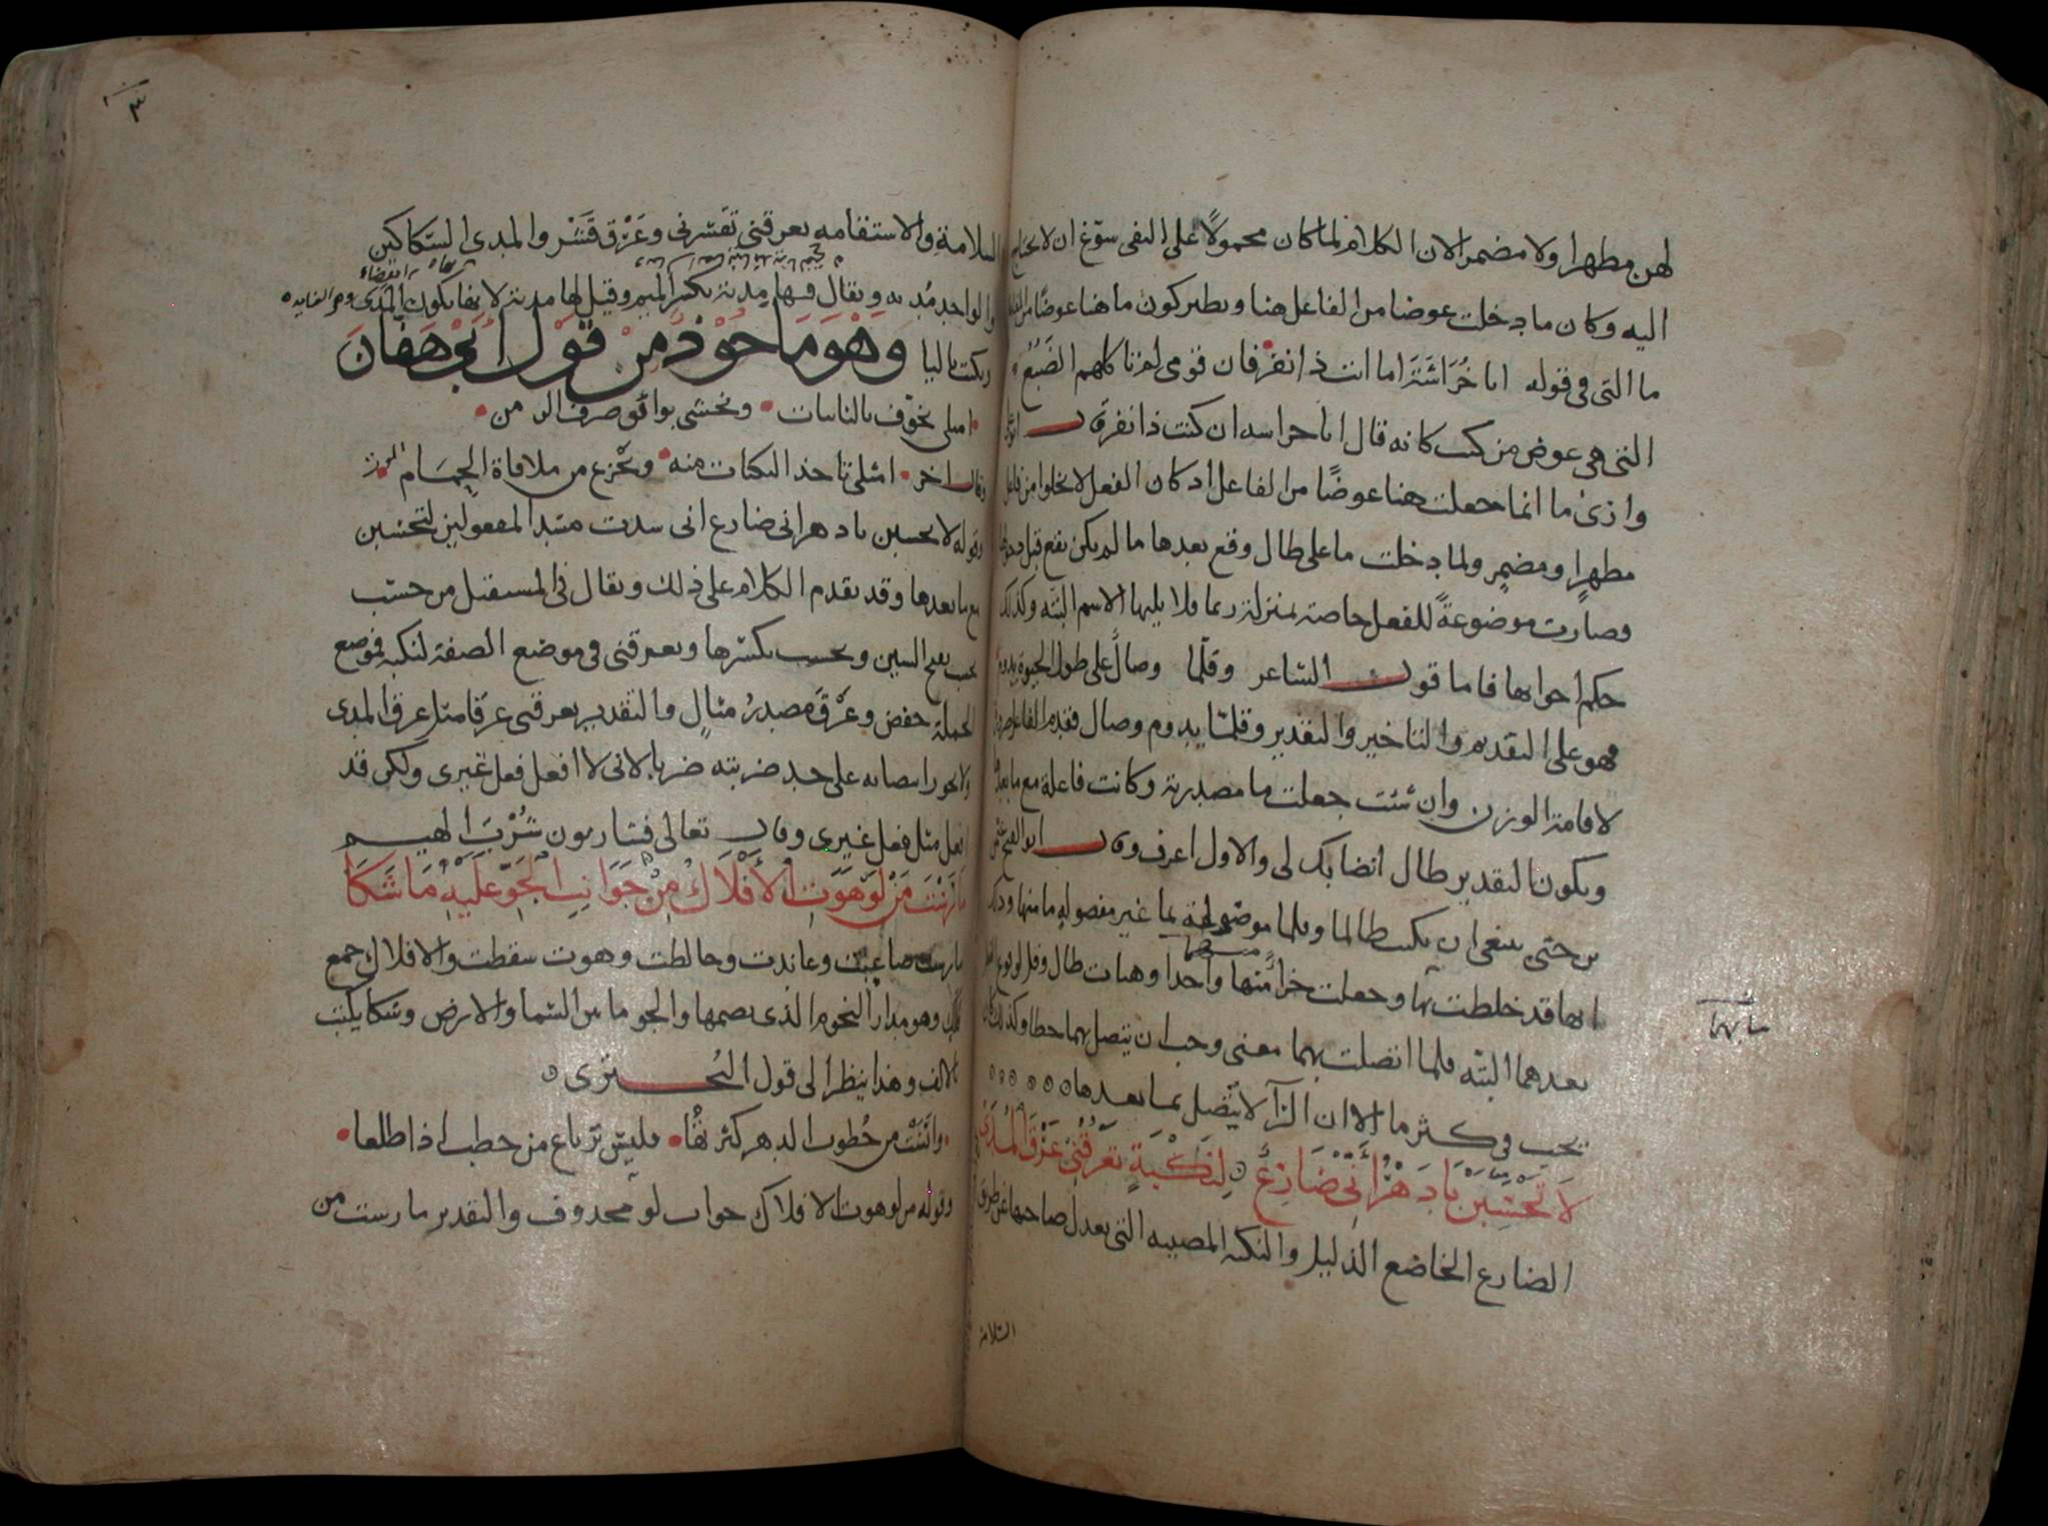 لهن مطهرا ولا مضمرا لان الكلام لما كان محمولا على النفى سوّغ ان لا يحتاج
اليه وكان ما دخلت عوضا من الفاعل هنا ونظير كون ما هنا عوضا من الفعل
ما التى فى قوله ابا خُرَاشَةَ اما انت ذا نفر فان قومى لم تاكلهم الضَبُعُ
التى هى عوض من كنت كانه قال ابا خراسه ان كنت ذا نفر قال ابو على
وازى ما انما جعلت هنا عوضًا من الفاعل اذ كان الفعل لا يخلوا من فاعل
مطهرٍ ومضمرٍ ولما دخلت ما على طال وقع بعدها ما لم يكن يقع قبل دخولها
وصارت موضوعةً للفعل خاصة بمنزلة ربما فلا يليها الاسم البته وكذلك
حكم اخواتها فاما قول الشاعر وقلّما وصالٌ على طول الحيوة يدوم
فهو على التقديم والتاخير والتقدير وقلمّا يدوم وصال فقدم الفاعل
لاقامة الوزن وان شئت جعلت ما مصدرية وكانت فاعلة مع ما بعدها
ويكون التقدير طال انضا بك لى والاول اعرف وقال ابو الفتح عثمن
بن جنى ينبغى ان يكتب طالما وقلما موضولة بما غير مفصولة ما منها وذلك
انها قد خلطت بها وجعلت جزأً منها واحدا وهيات طال وقل لوقوع الفعل
بعدهما البته فلما اتصلت بهما معنى وجب ان يتصل بهما خطا وكذلك كان
يجب فى كثر ما الا ان الرآ لا يتصل بما بعدها
لَا تَحْسَبَنْ يَا دَهْرُ أَنّى ضَارِعٌ لِنَكْبَةٍ تَعْرُقُنِى عَرْقَ الْمُدَى
الضارع الخاضع الذليل والنكبه المصيبه التى تعدل صاحبها عن طريق
السلامة
بما بهما
٣
السلامة والاستقامه تعرقنى تقشرنى وعَرْق قَشْر والمدى السّكاكين
والواحد مُديه ويقال فيها مدية بكسر الميم وقيل لها مدية لانها يكون المَدَى
وكتب باليا وَهْوَ مَاخُوْذٌ مِنْ قَوْلِ أَبِى هَفَّانَ
امثلى تخوّف بالنايبات وتخشى بوائق صرف الزمن
وقال اخر امثلى تاخذ النكبات منه ويجزع من ملاقاة الحِمَام
وقوله لا تحسبن يا دهر انى ضارع انى سدت مسَدّ المفعولين لتحسَبن
مع ما بعدها وقد تقدم الكلام على ذلك ويقال فى المستقبل من حسَب
يحسب بفتح السين ويحسب بكسرها وتعرقنى فى موضع الصفة لنكبة فموضع
الجملة خفض وعَرْقَ مصدرُ مثالٍ والتقدير تعرقنى عرقا مثل عرق المدى
ولا يجوز انتصابه على حد ضربته ضربا لانى لا افعل فعل غيرى ولكن قد
افعل مثل فعل غيرى وقال تعالى فشاربون شُرْبَ الهيم
مَارَسْتَ مَنْ لَوْ هَوَتِ الْأَفْلَاكُ مِنْ جَوَانِبِ الْجَوِّ عَلَيْهِ مَا شَكَا
مارست صاعبت وعاندت وخالطت وهوت سقطت والافلاك جمع
فلك وهو مدار النجوم الذى يضمها والجو ما بين السّما والارض وشكا يكتب
بالالف وهذا ينظر الى قول البُحترى
واتَتْ من خُطوب الدهر كثرتها فليس ترتاع من خطب اذا طلعا
وقوله من لو هوت الافلاك جواب لو محذوف والتقدير مارست من